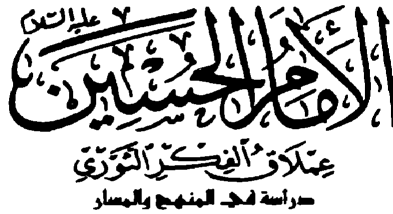 الإمام الحسين عليه السلام
عملاق الفكر الثوري
دراسة في المنهج والمسار